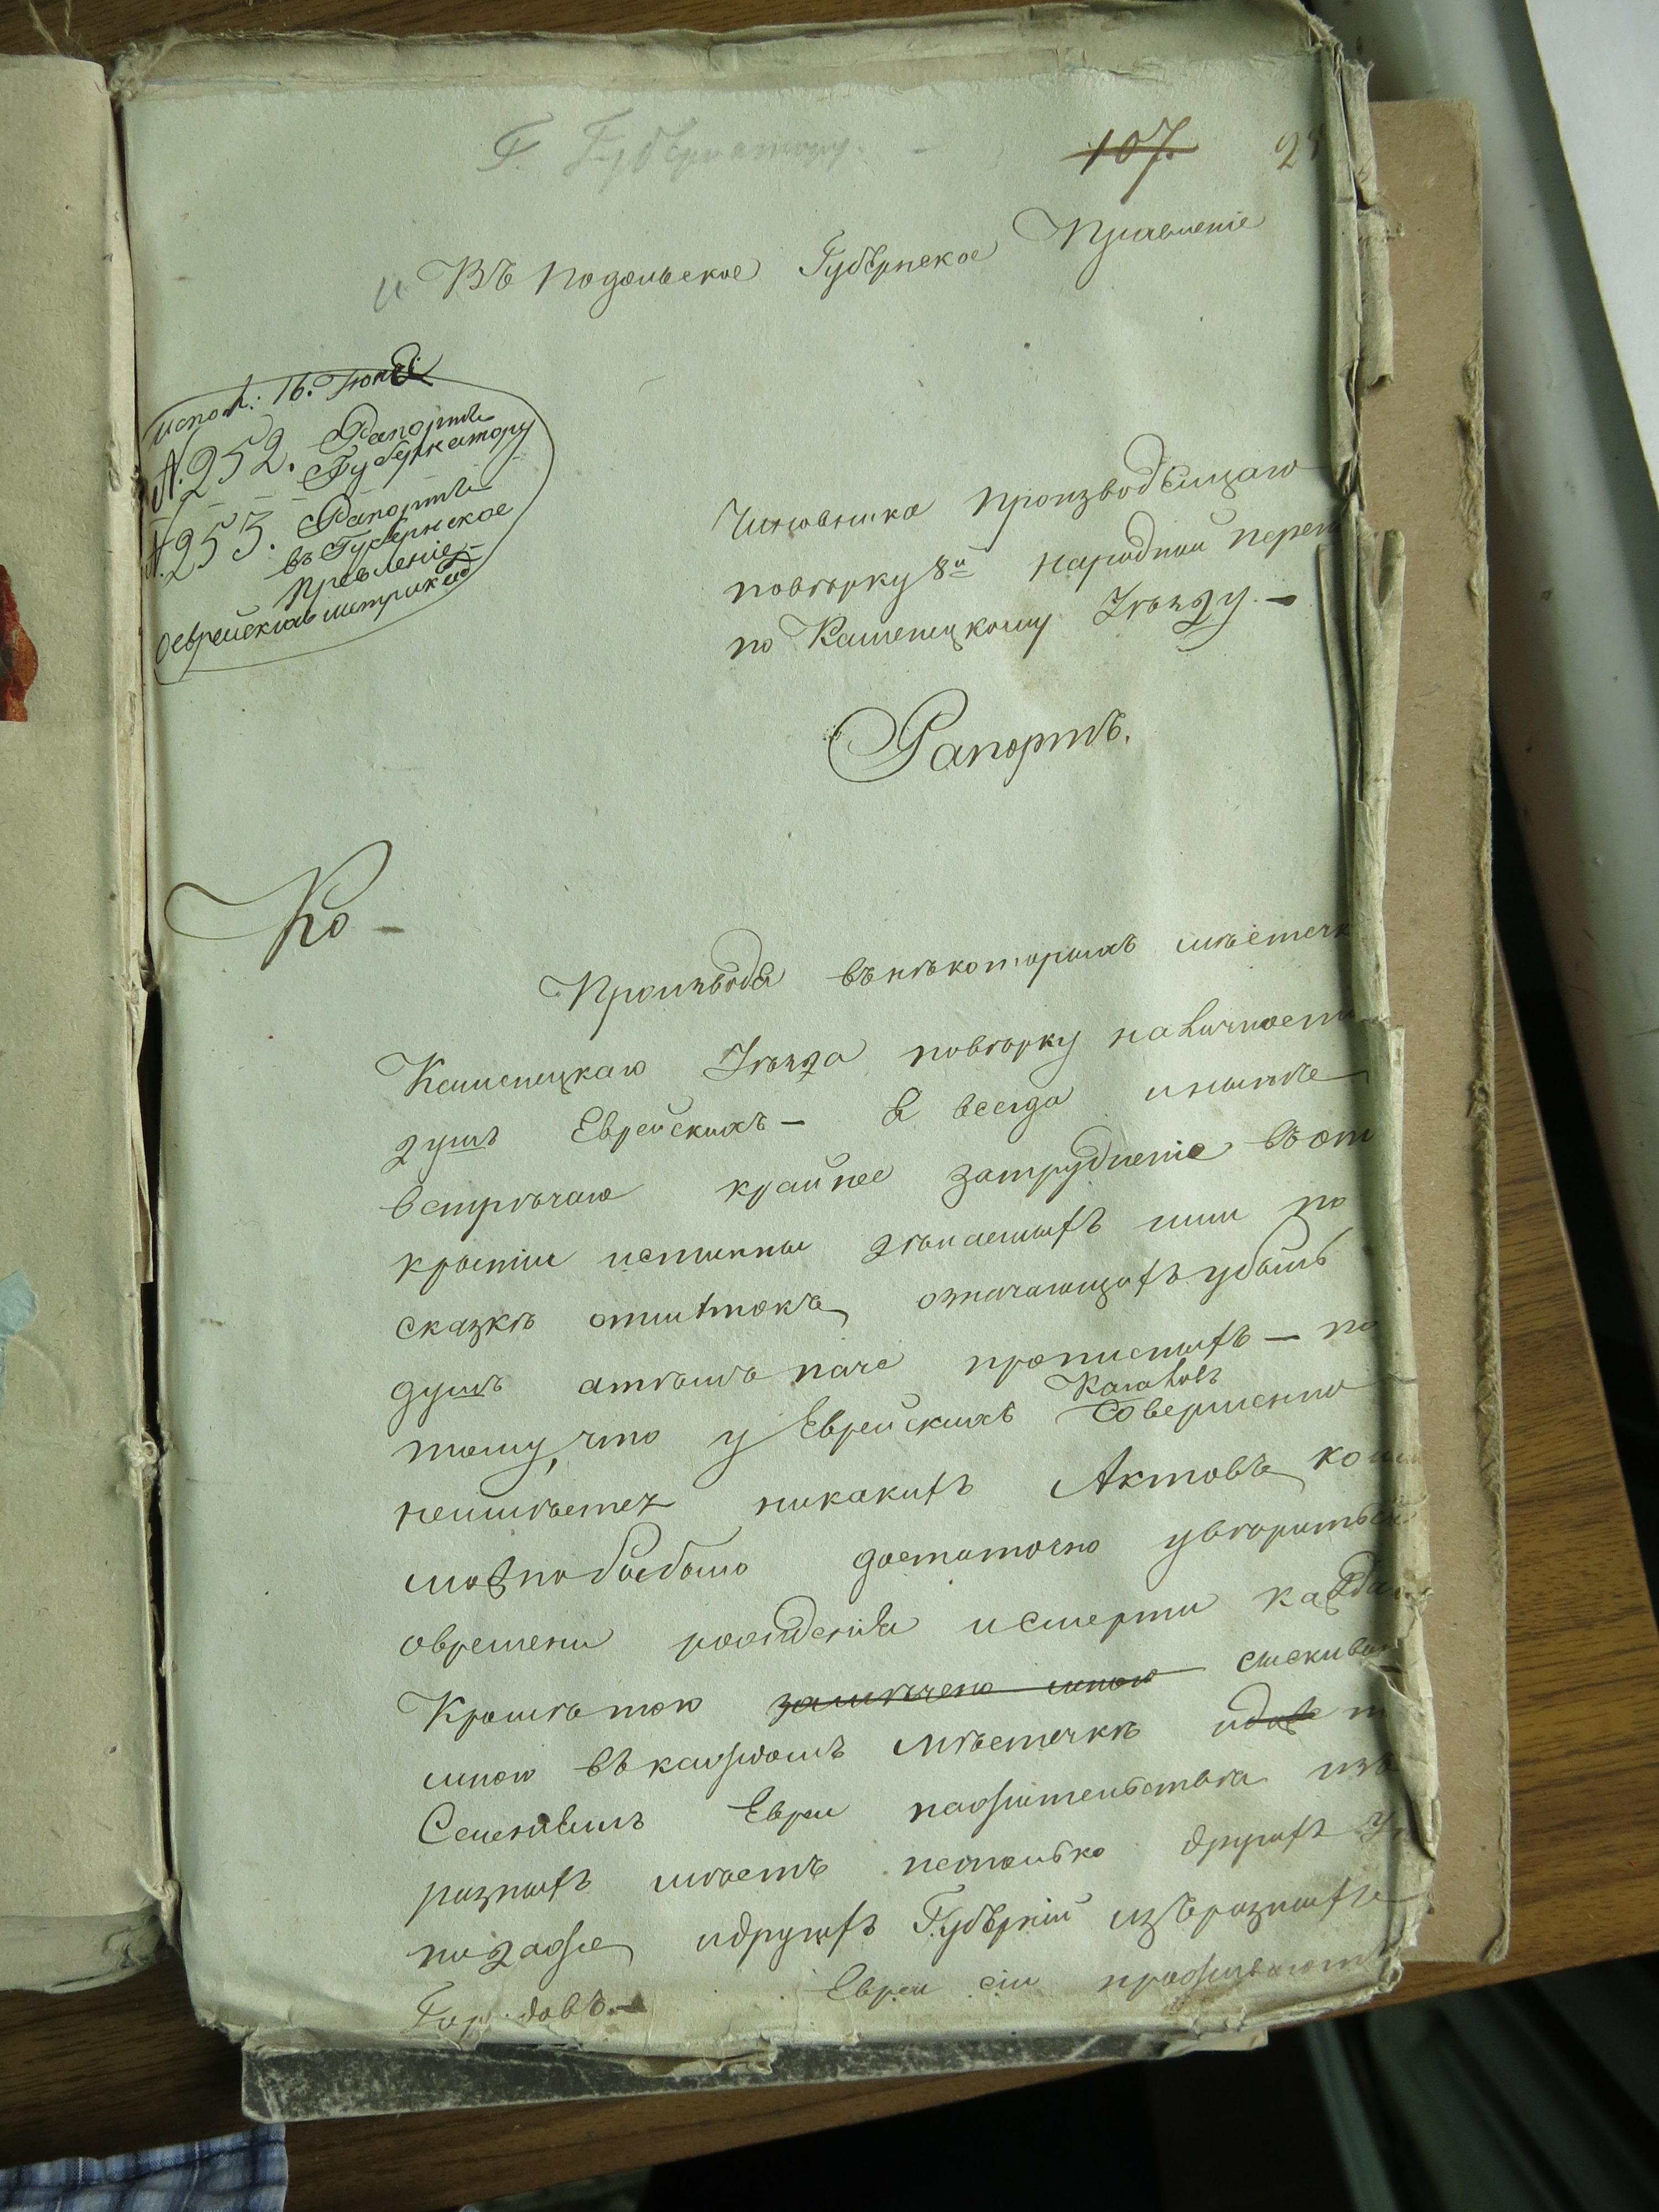 Г. Губернатору.
107.
и Въ Подольское Губернское Правленіе
испол: 16. Іюня
N. 252. Рапортъ
Губернатору
N. 253. Рапортъ
въ Губернское
Правленіе
о еврейскихъ метрикахъ
Чиновника Производящаго
повѣрку 8й народной переп
по Каменецкому Уѣзду.—
Рапортъ.
Ко-
Производя въ нѣкоторыхъ мѣстечк
Каменецкаго Уѣзда повѣрку наличности
душъ Еврейскихъ— я всегда
встрѣчаю крайнее затрудненіе въ от
крытіи истинны дѣлаемыхъ ими по
сказкѣ отмѣтокъ, означающихъ убыль
душъ а тѣмъ паче прописныхъ— по
тому, что у Еврейскихъ Кагаловъ совершенно
неимѣется никакихъ Актовъ, кои
можно бы было достаточно увѣриться
овремени рожденія исмерти кажда
Кромѣ того замѣчено мною сыскива
мною въ каждомъ мѣстечкѣ идаже
Селеніямъ Евреи нажительства изъ
разныхъ мѣстъ нетолько другихъ
пида же, идругихъ Губерній изъразныхъ
Городовъ.— Евреи сіи проживаютъ